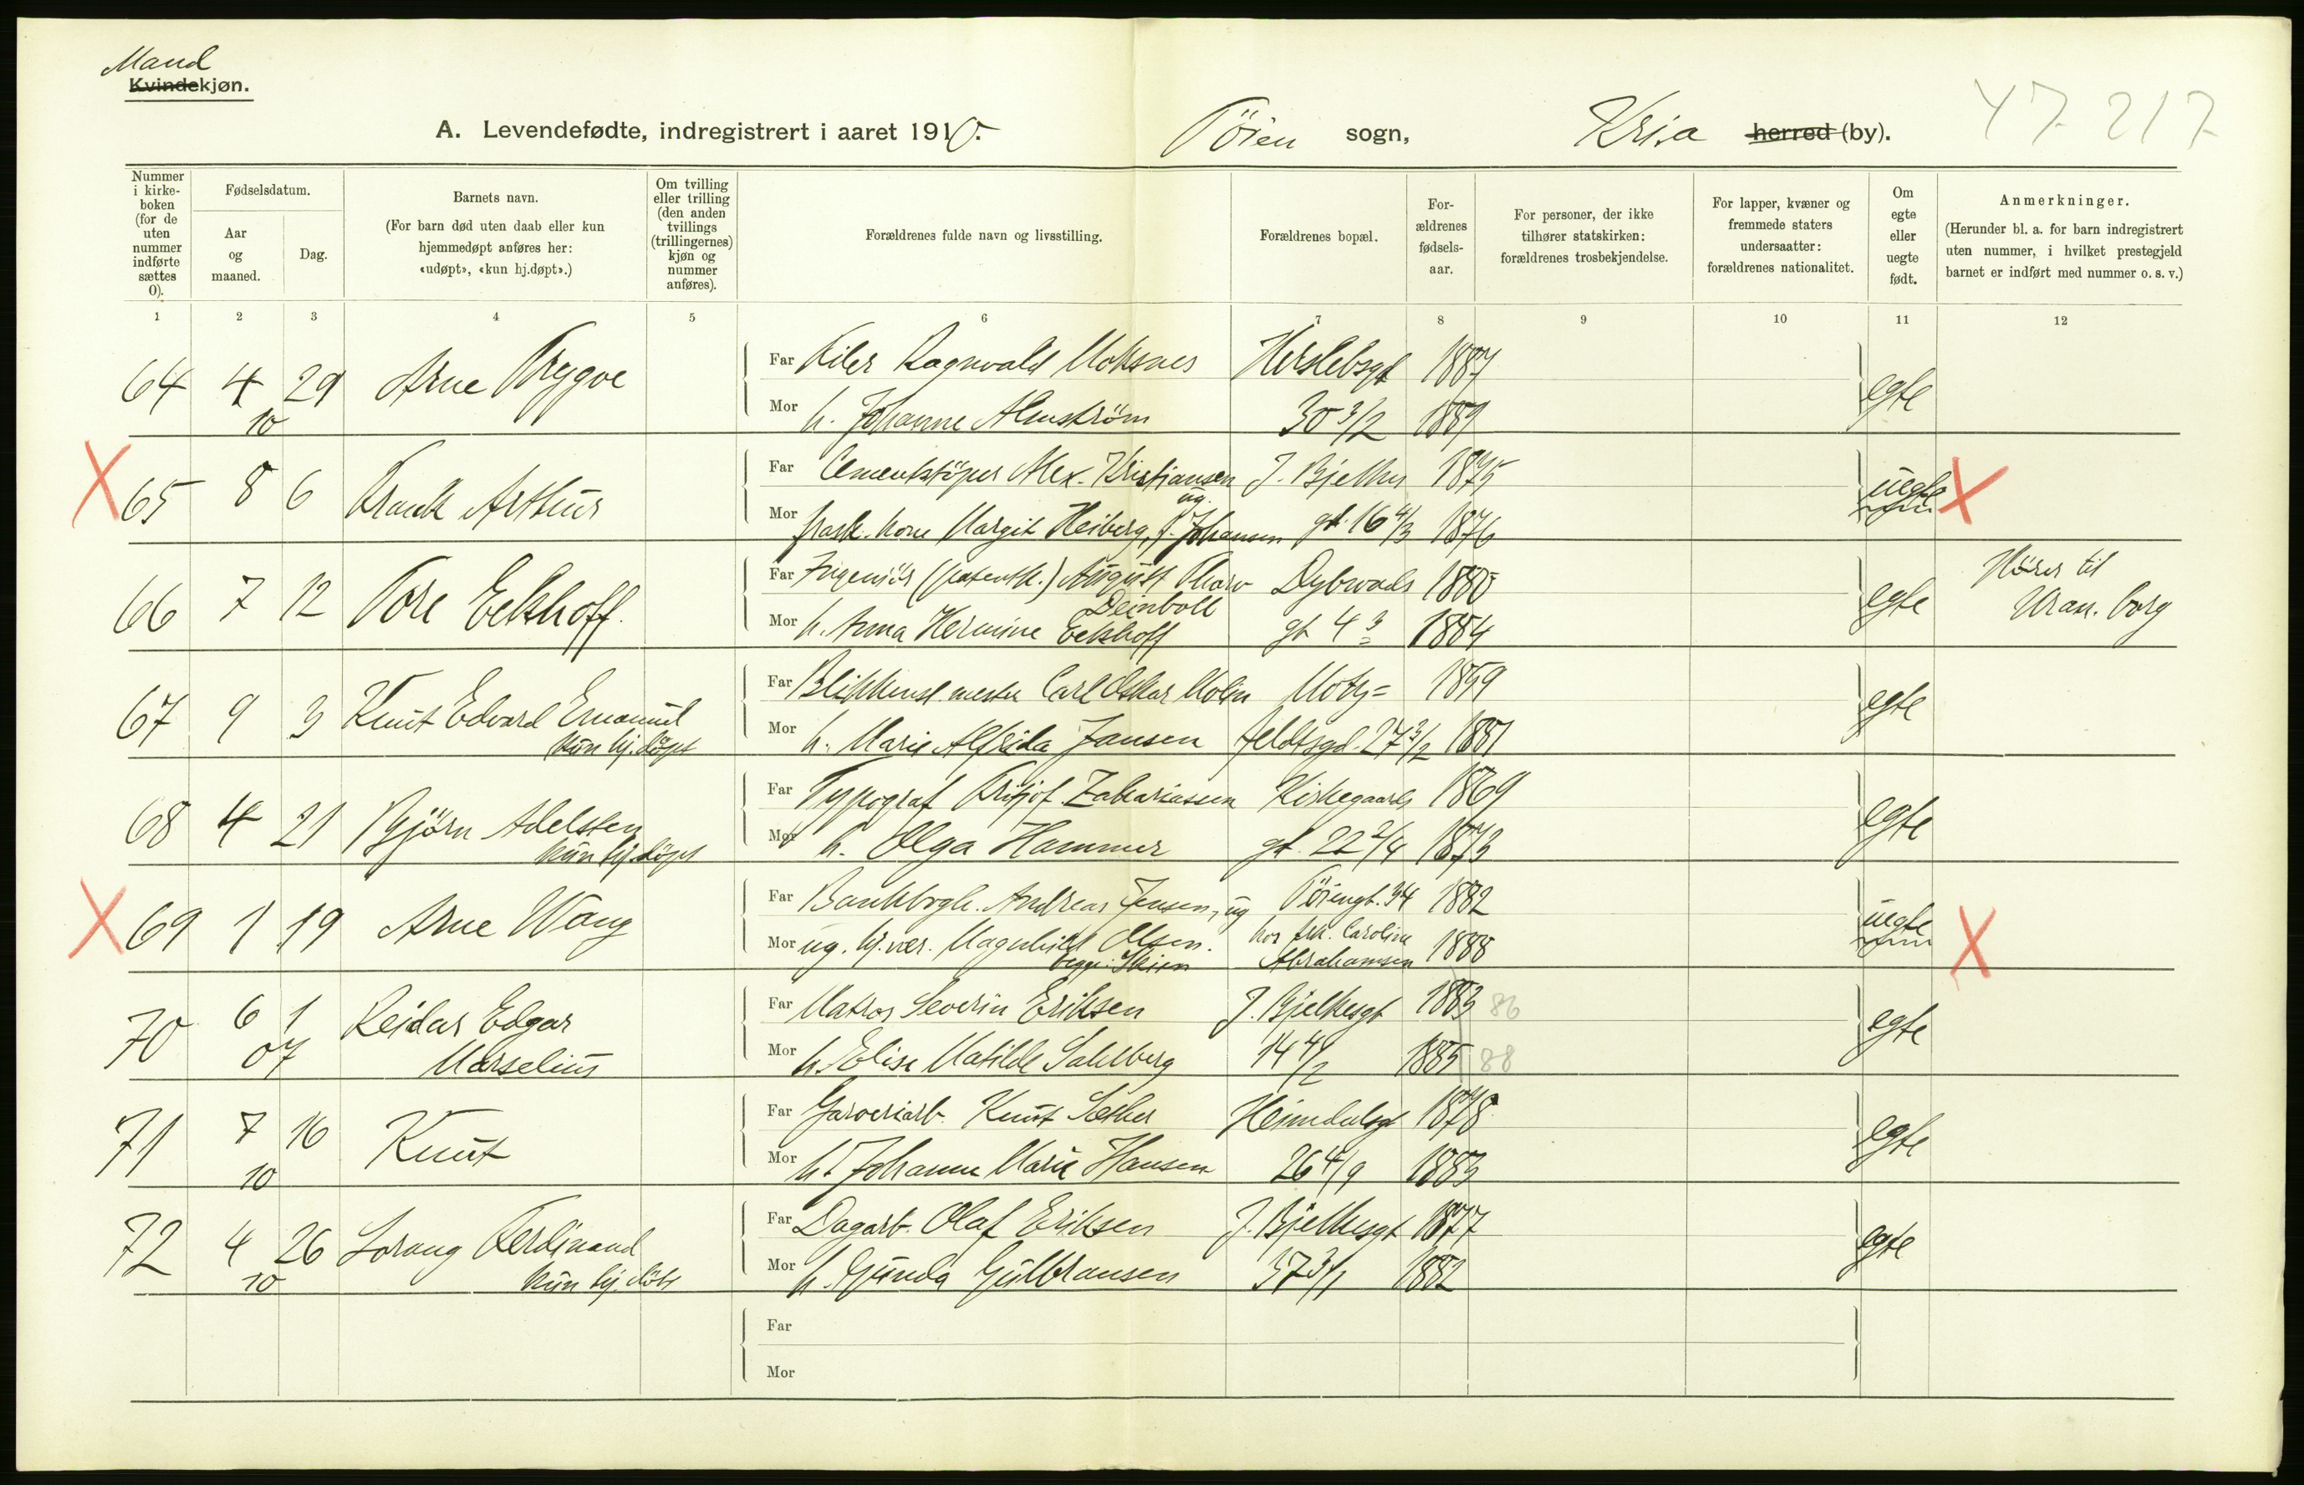 Mand
Kvindekjøn.
A. Levendefødte, indregistrert i aaret 1910.
Töien sogn, Kr.ia herred (by). 47 217
Nummer i kirke-boken (for de uten nummer indførte sættes 0).
Fødselsdatum.
Aar og maaned.
Dag.
Barnets navn.
(For barn død uten daab eller kun hjemmedøpt anføres her: «udøpt», «kun hj.døpt».)
Om tvilling eller trilling (den anden tvillings (trillingernes) kjøn og nummer anføres).
Forældrenes fulde navn og livsstilling.
Forældrenes bopæl.
For-ældrenes fødsels-aar.
For personer, der ikke tilhører statskirken: forældrenes trosbekjendelse.
For lapper, kvæner og fremmede staters undersaatter: forældrenes nationalitet.
Om egte eller uegte født.
Anmerkninger.
(Herunder bl. a. for barn indregistrert uten nummer, i hvilket prestegjeld barnet er indført med nummer o. s. v.)
1 2 3 4 5 6 7 8 9 10 11 12
64 4 29 Arne Trygve Far Filer Ragnvald Moksnes Herslebsgt 1887 egte
10 Mor h. Johanne Almström 30 3/2 1889
X 65 8 6 Frank Arthur Far Cementstöper Alex. Kristiansen J. Bjelkes 1875 uegte X
ug.
Mor frask. kone Margit Heiberg, f. Johansen gt. 16 4/3 1876
66 7 12 Tore Eckhoff Far Ingeniör (patentk.) August Thorv Dybwads 1880 egte Hörer til
Deinboll
Mor h. Anna Hermine Eckhoff gt 4 3 1884 Uran.borg
67 9 3 Knut Edvard Emanuel Far Blikkensl.mester Carl Oskar Holm Motz= 1859 egte
kun hj.döpt Mor h. Marie Alfrida Jansen feldtsgd. 27 3/2 1881
68 4 21 Björn Adelsten Far Typograf Fritjof Zakariassen Kirkegaards 1869 egte
kun hj.döpt Mor h. Olga Hammer gt. 22 2/4 1873
X 69 1 19 Arne Wang Far Bankbogh. Andreas Jensen, ug Töiengt. 34 1882 uegte X
Mor ug. hj.vær. Magnhild Olsen. hos frk. Caroline 1888
begge: Skien Abrahamsen
70 6 1 Reidar Edgar Far Matros Severin Eriksen J. Bjelkesgt 1883 86 egte
07 Marselius Mor h. Elise Matilde Sahlberg 14 4/2 1885 88
71 7 16 Knut Far Garveriarb. Knut Sæther Heimdalsgt 1878 egte
10 Mor h. Johanne Marie Hansen 26 4/9 1883
72 4 26 Lorang Ferdinand Far Dagarb. Olaf Eriksen J. Bjelkesgt 1877 egte
10 kun hj.döbt Mor h. Gunda Gulbransen 37 3/1 1882
Far
Mor